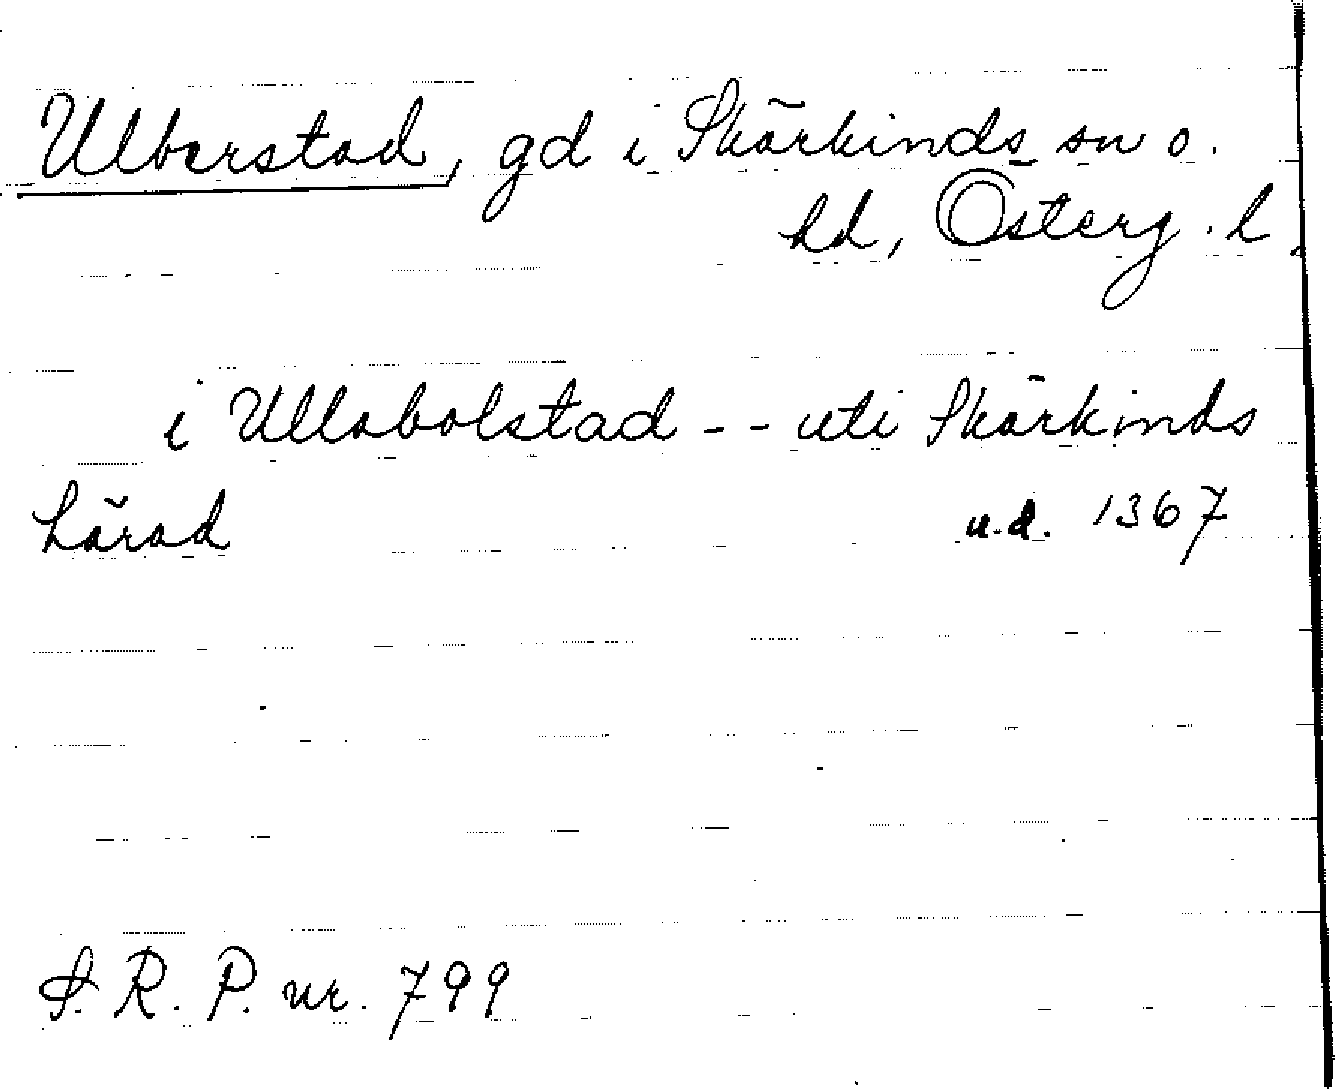 Ulberstad, gd i Skärkinds sn o.
hd, Österg. l.
i Ullabolstad - - uti Skärkinds
härad u.d. 1367
S. R. P. nr. 799